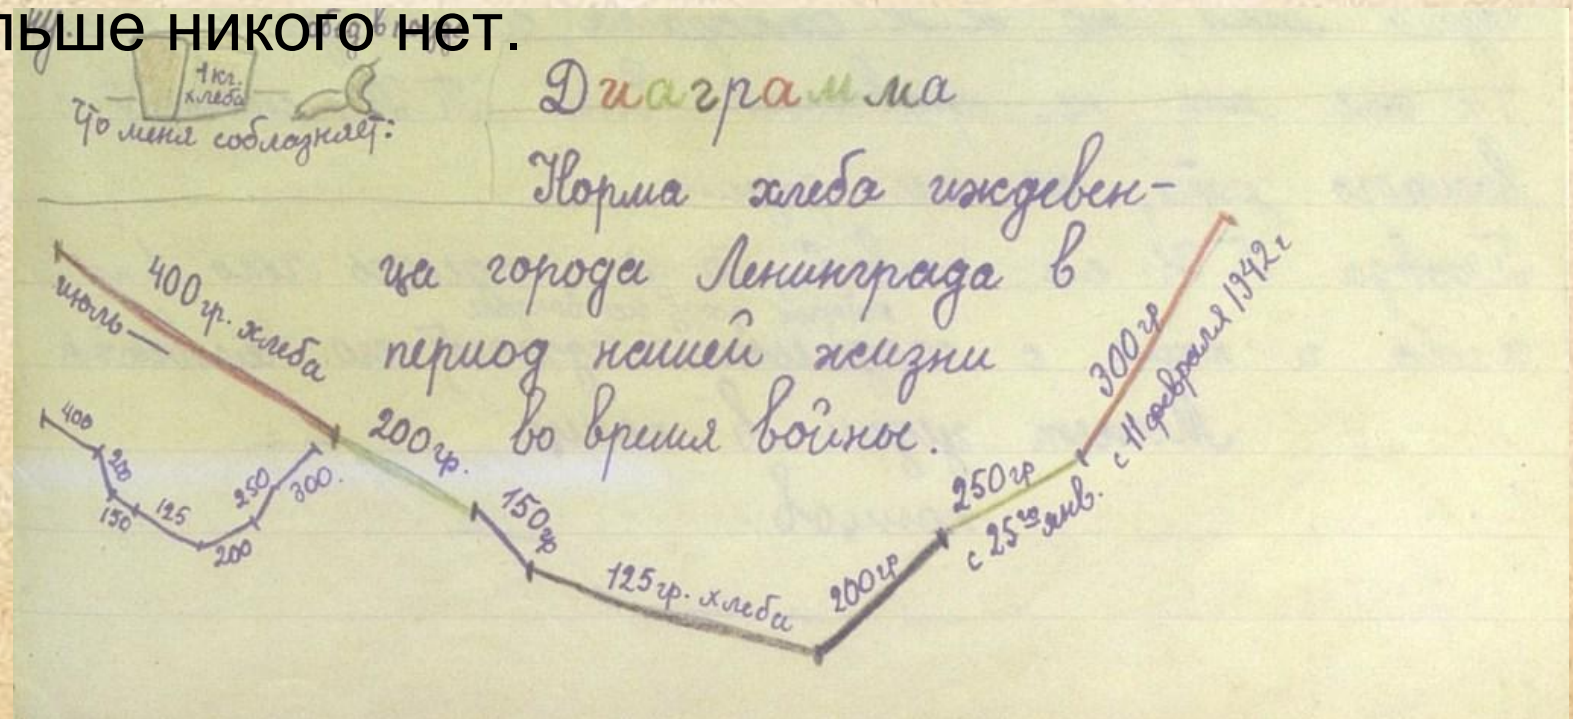 льше никого нет.
1 кг.
хлеба
Что меня соблазняет:
Диаграмма
Норма хлеба иждевен-
ца города Ленинграда в
период нашей жизни
во время войны.
июль—
400 гр. хлеба
200 гр.
150 гр
125 гр. хлеба
200 гр
250 гр
с 25го янв.
300 гр
с 11 февраля 1942 г
400
200
150
125
200
250
300.